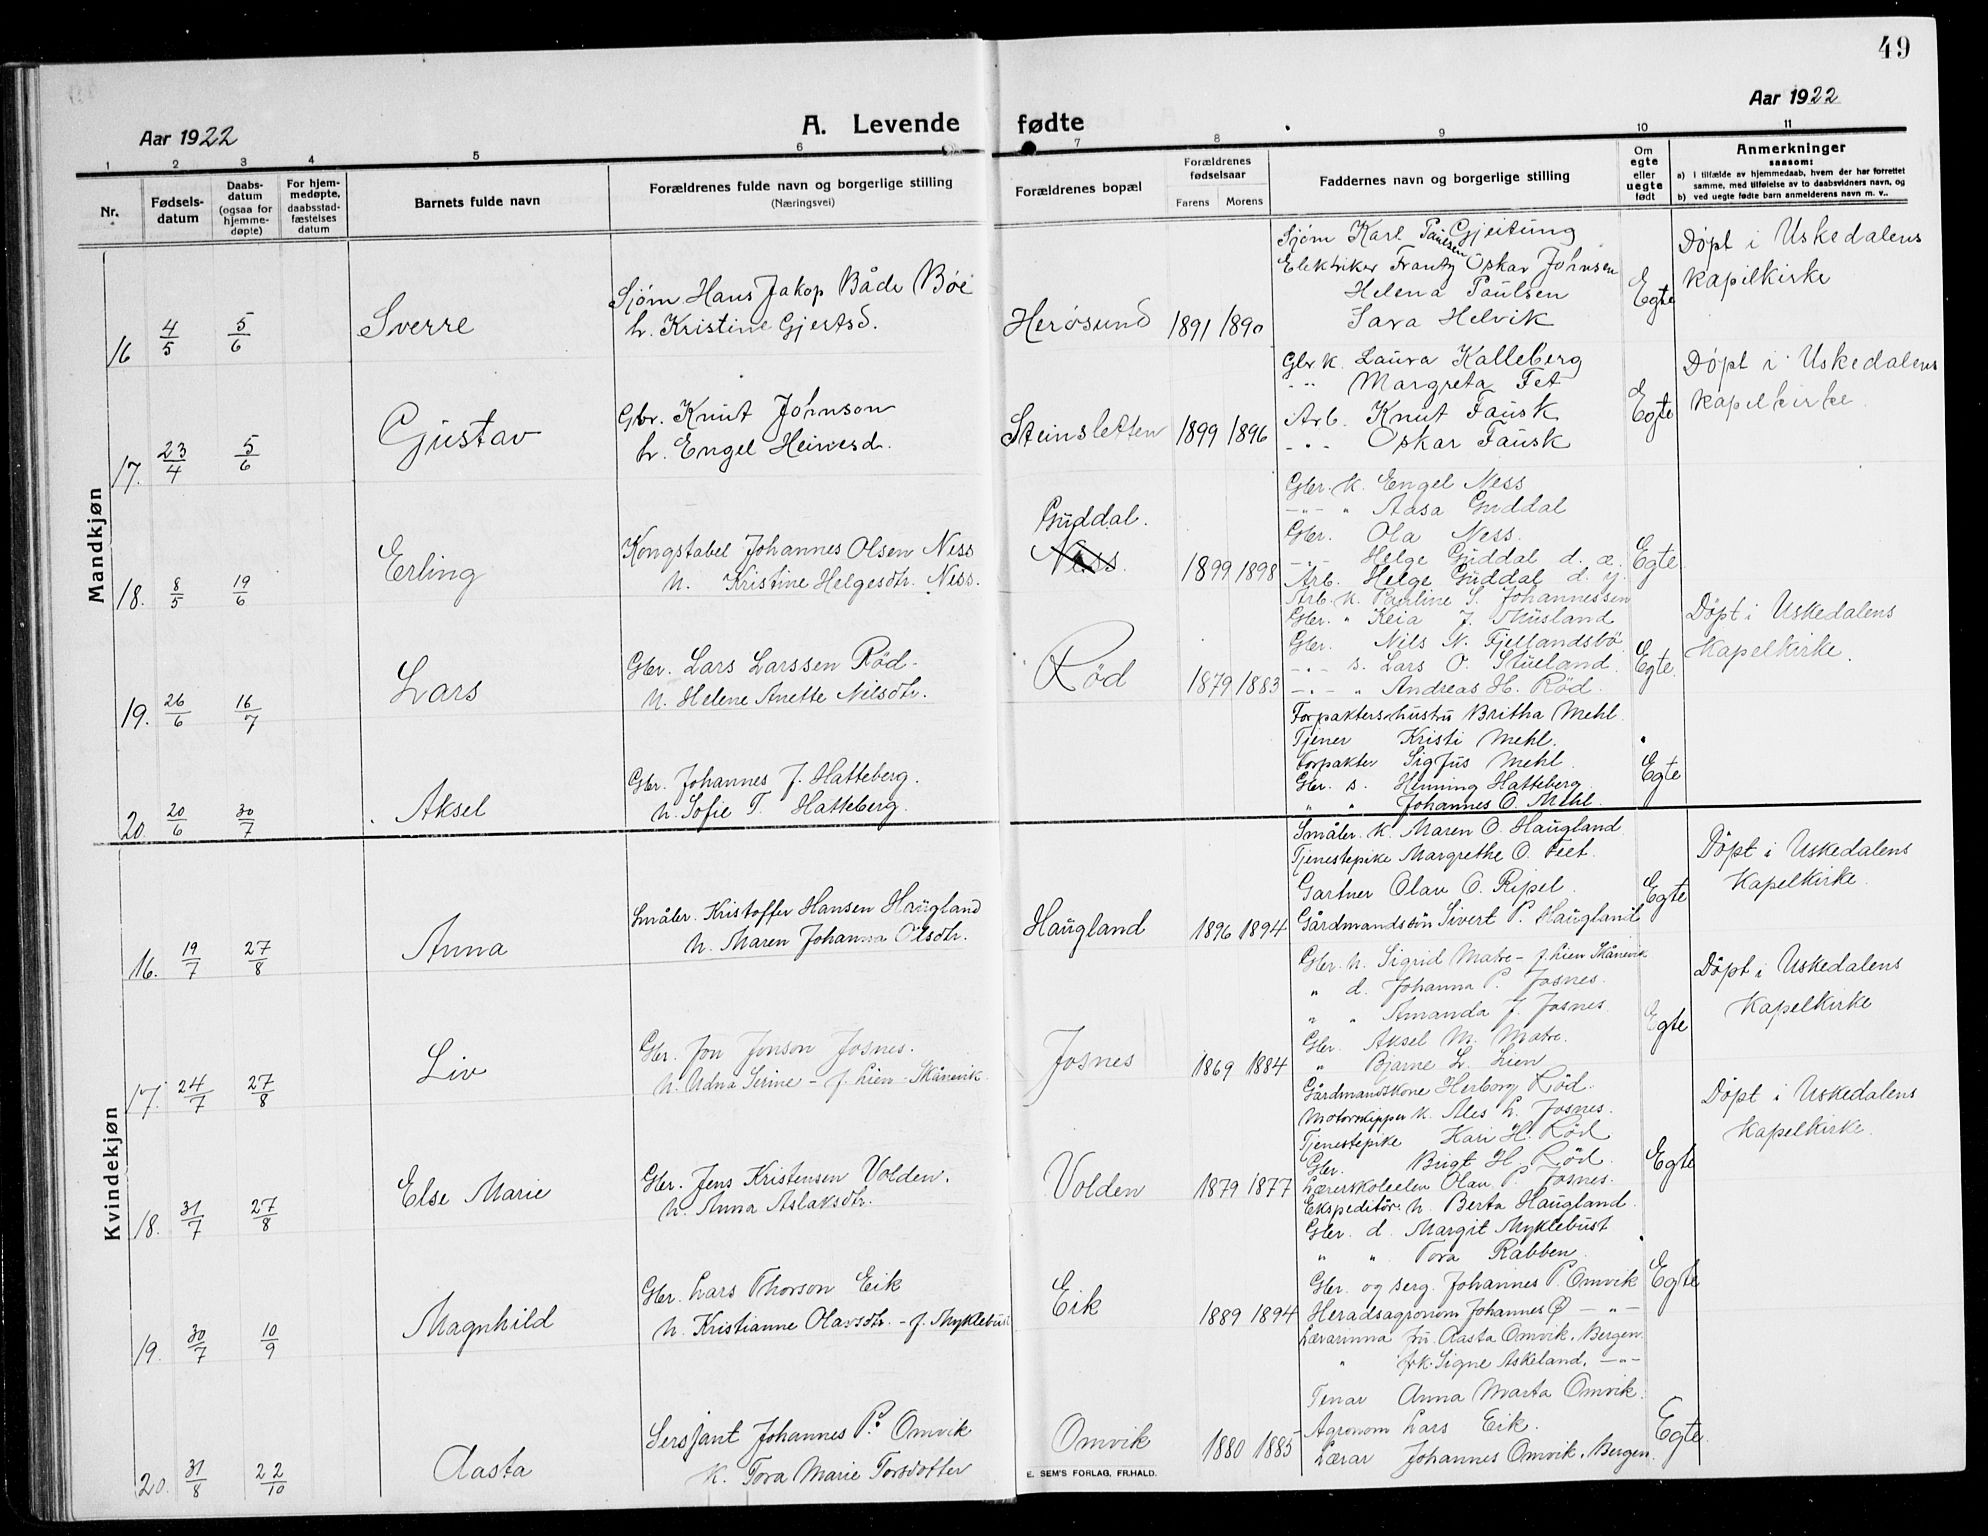 49
Aar 1922
A. Levende fødte
Aar 1922
1 2 3 4 5 6 7 8 9 10 11
Nr.
Fødsels-
datum
Daabs-
datum
(ogsaa for
hjemme-
døpte)
For hjem-
medøpte,
daabsstad-
fæstelses
datum
Barnets fulde navn
Forældrenes fulde navn og borgerlige stilling
(Næringsvei)
Forældrenes bopæl
Forældrenes
fødselsaar
Farens Morens
Faddernes navn og borgerlige stilling
Om
egte
eller
uegte
født
Anmerkninger
saasom:
a) i tilfælde av hjemmedaab, hvem der har forrettet
samme, med tilføielse av to daabsvidners navn, og
b) ved uegte fødte barn anmelderens navn m. v..
Mandkjøn
16 4/5 5/6 Sverre
Sjøm Hans Jakop Både Böe
h. Kristine Gjertsd.
Herøsund 1891 1890
Sjøm Karl Paulsen Gjeitung
Elektriker Frantz Oskar Johnsen
Helena Paulsen
Sara Helvik
Egte
Døpt i Uskedalens
Kapelkirke
17. 23/4 5/6 Gustav
Gbr. Knut Johnson
h. Engel Heinesd.
Steinsletten 1899 1896
Gbr. k. Laura Kalleberg
" " Margreta Fet
Arb. Knut Fausk
- " - Oskar Fausk
Egte
Døpt i Uskedalens
Kapelkirke
18. 8/5 19/6 Erling
Kongstabel Johannes Olsen Ness
h. Kristine Helgesdtr. Ness.
Guddal.
Ness.
1899 1898
Gbr. k. Engel Ness
- " - " Aasa Guddal
Gbr. Ola Ness.
- " - Helge Guddal d. æ.
Arb. Helge Guddal d. y.
Egte
19. 26/6 16/7 Lars
Gbr. Lars Larssen Röd.
h. Helene Anette Nilsdtr.
Röd 1879 1883
Arb. k. Pauline S. Johannessen
Gbr. " Keia J. Musland
Gbr. Nils N. Fjellandsbö
- " - s. Lars O. Stueland.
- " - " Andreas H. Röd.
Egte.
Döpt i Uskedalens
Kapelkirke.
20. 20/6 30/7 Aksel
Gbr. Johannes J. Hatteberg.
h. Sofie T. Hatteberg.
Forpaktershustru Britha Mehl.
Tjener Kristi Mehl.
Forpakter Sigfus Mehl.
Gbr. s. Henning Hatteberg
" " Johannes O. Mehl.
Egte
Kvindekjøn
16. 19/7 27/8 Anna
Småbr. Kristoffer Hansen Haugland
h. Maren Johanna Olsdtr.
Haugland 1896 1894
Småbr. k. Maren O. Haugland.
Tjenestepike Margrethe O. Feet.
Gartner Olav O. Ripel.
Gårdmandssön Sivert P. Haugland
Egte
Döpt i Uskedalens
Kapelkirke.
17. 24/7 27/8 Liv
Gbr. Jon Jonson Josnes.
h. Udna Serine - f. Lien - Skånevik.
Josnes 1869 1884
Gbr. h. Sigrid Matre - f. Lien Skånevik
" d. Johanna P. Josnes.
" " Amanda J. Josnes
Gbr. Aksel M. Matre.
" Bjarne L. Lien
Egte
Döpt i Uskedalens
Kapelkirke
18. 31/7 27/8 Else Marie
Gbr. Jens Kristensen Volden.
h. Anna Aslaksdtr.
Volden 1879 1877
Gårdmandskone Herborg Röd.
Motorskipper k. Ales L. Josnes.
Tjenestepike Kari H. Röd
Gbr. Brigt H. Röd.
Lærerskoleelev Olav P. Josnes.
Egte
Döpt i Uskedalens
Kapelkirke.
19. 30/7 10/9 Magnhild
Gbr. Lars Thorson Eik
h. Kristianne Olavsdtr. - f. Myklebust
Eik 1889 1894
Ekspeditör h. Berta Haugland.
Gbr. d. Margit Myklebust
" " Tora Rabben.
Gbr. og serg. Johannes P. Omvik
Heradsagronom Johannes Ø - " -
Egte
20. 31/8 22/10 Aasta
Sersjant Johannes P. Omvik
K. Tora Marie Torsdotter
Omvik 1880 1885
Lærarinna fru Aasta Omvik, Bergen.
" frk. Signe Askeland. - " -
Tenar Anna Marta Omvik.
Agronom Lars Eik.
Lærar Johannes Omvik, Bergen.
Egte.
E. SEM'S FORLAG, FR.HALD.